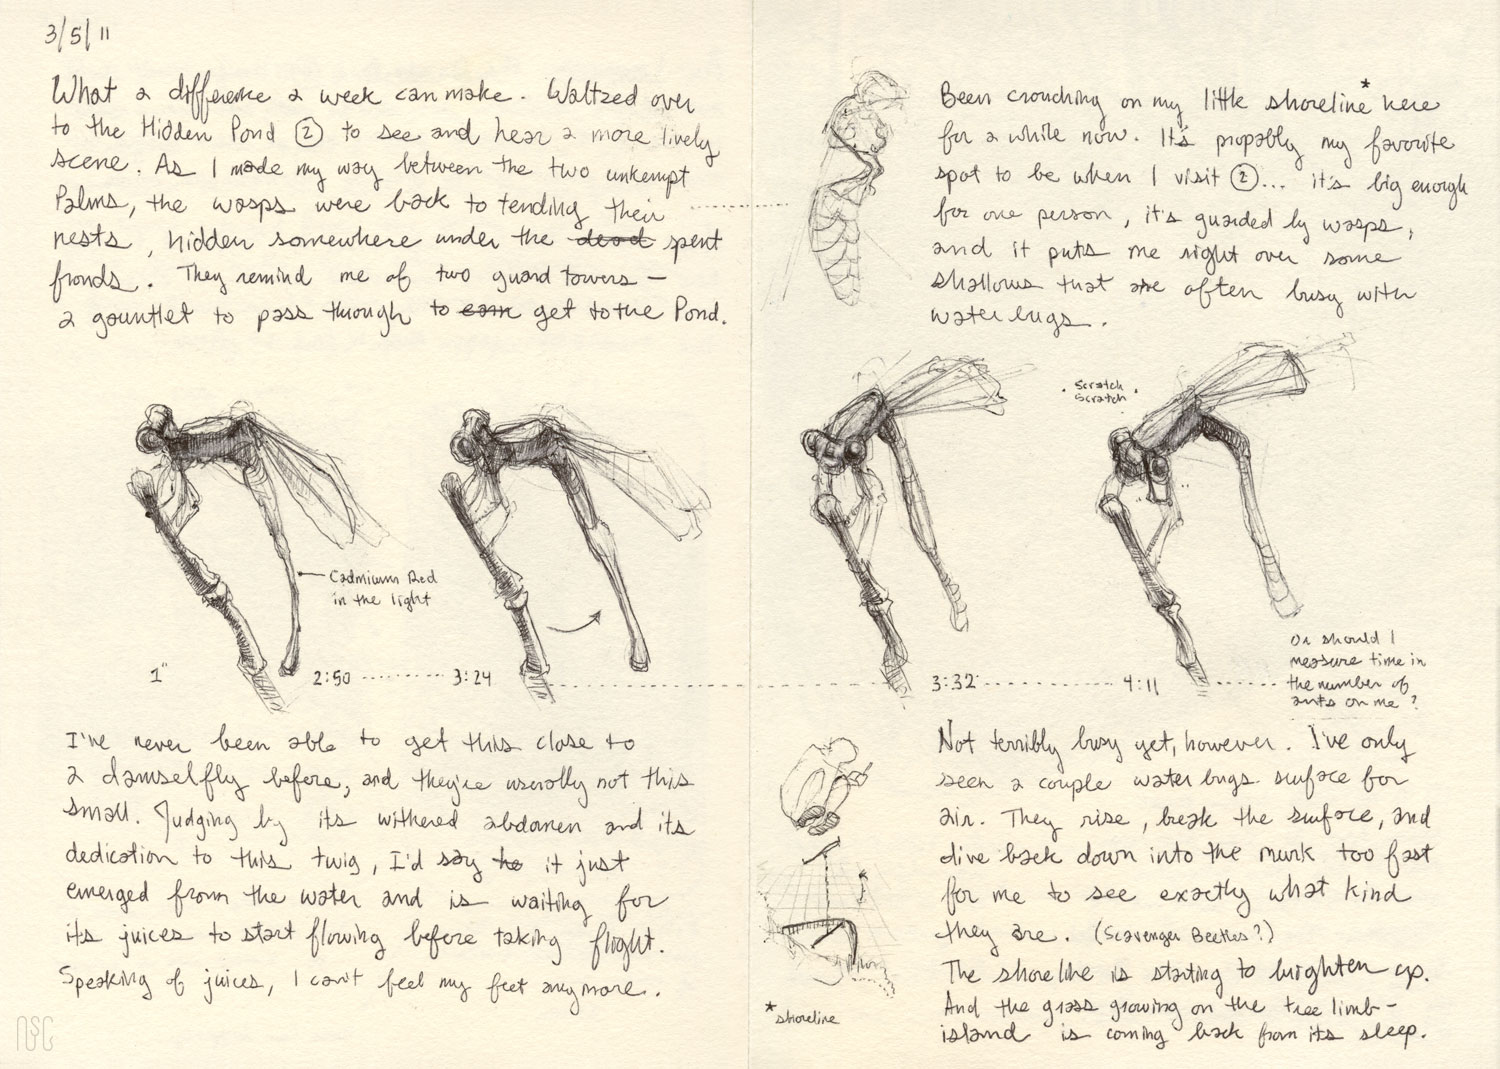 3/5/11
What a difference a week can make. Waltzed over
to the Hidden Pond ② to see and hear a more lively
scene. As I made my way between the two unkempt
Palms, the wasps were back to tending their
nests, hidden somewhere under the dead spent
fronds. They remind me of two guard towers —
a gauntlet to pass through to earn get to the Pond.
Cadmium Red
in the light
1"
2:50
3:24
I've never been able to get this close to
a damselfly before, and they're usually not this
small. Judging by its withered abdomen and its
dedication to this twig, I'd say he it just
emerged from the water and is waiting for
its juices to start flowing before taking flight.
Speaking of juices, I can't feel my feet anymore.
NSC
Been crouching on my little shoreline* here
for a while now. It's propably my favorite
spot to be when I visit ②... it's big enough
for one person, it's guarded by wasps,
and it puts me right over some
shallows that are often busy with
water bugs.
Scratch
Scratch
3:32
4:11
Or should I
measure time in
the number of
ants on me?
Not terribly busy yet, however. I've only
seen a couple water bugs surface for
air. They rise, break the surface, and
dive back down into the murk too fast
for me to see exactly what kind
they are. (Scavenger Beetles?)
The shoreline is starting to brighten up.
And the grass growing on the tree limb-
island is coming back from its sleep.
*shoreline